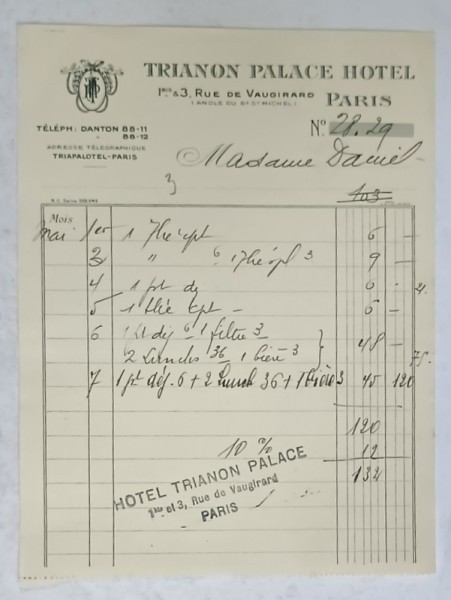 TRIANON PALACE HOTEL
1BIS & 3, RUE DE VAUGIRARD
(ANGLE DU Bd St MICHEL)
PARIS
TÉLÉPH: DANTON 88-11
" 88-12
ADRESSE TÉLÉGRAPHIQUE
TRIAPALOTEL-PARIS
No 28.29
Madame Daniel
3
103
Mois
Mai 1er 1 Thé cpt 6 —
2 " 6 1 Thé spl 3 9 —
4 1 pt dej 6 -
5 1 thé cpt — 6 —
6 1 pt déj 6 1 filtre 3
2 Lunchs 36 1 bière 3 48 —
75.
7 1 pt déj. 6 + 2 Lunch 36 + 1 Bière 3 45 120
120
10 % 12
132
HOTEL TRIANON PALACE
1BIS et 3, Rue de Vaugirard
PARIS